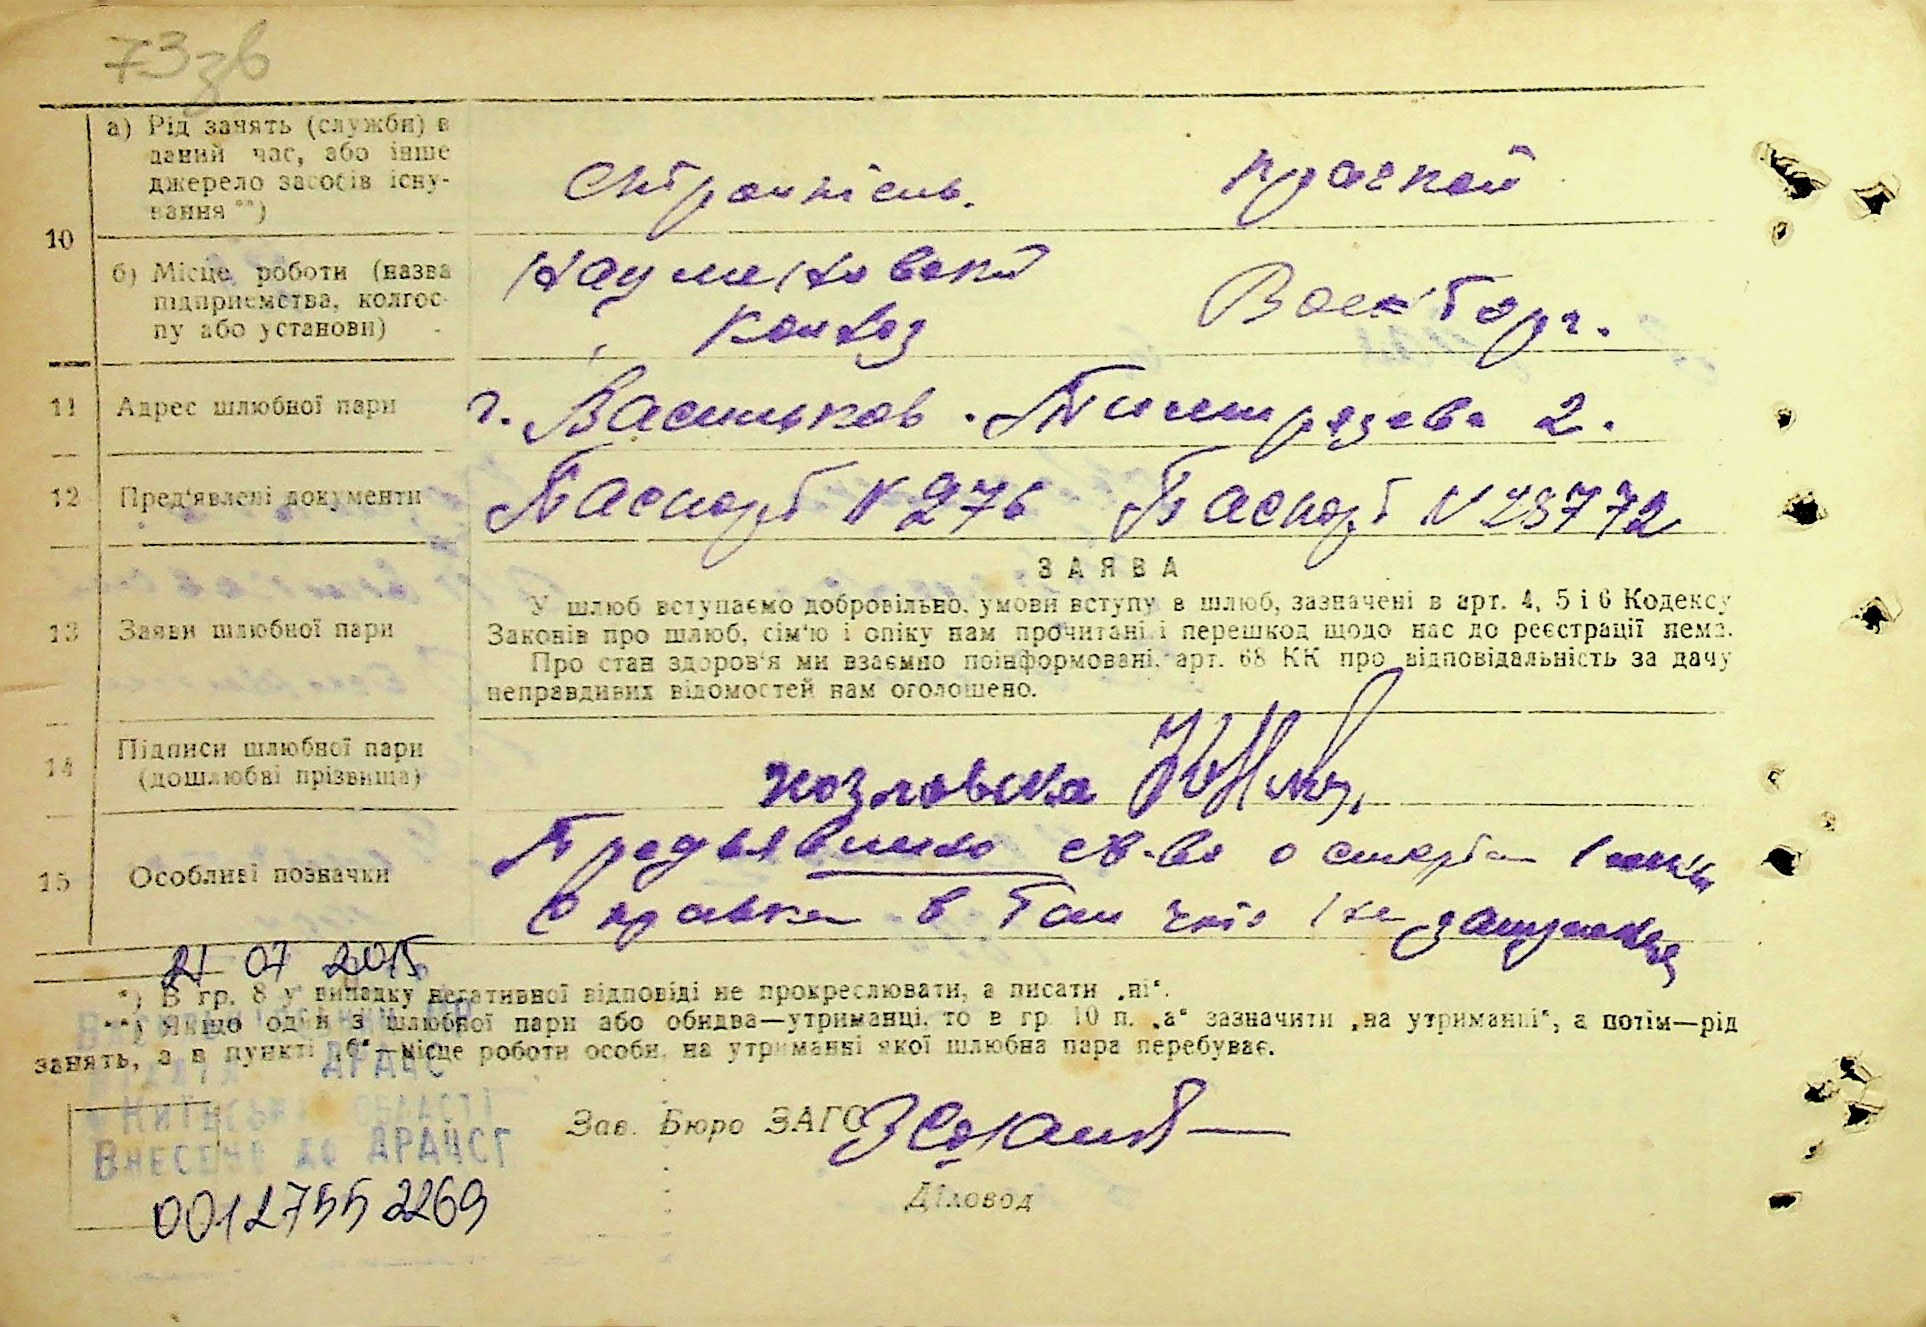 73зв
10
а) Рід занять (служби) в
даний час, або інше
джерело засобів існу-
вання **)
Строитель.
прачкой
б) Місце роботи (назва
підприємства, колгос-
пу або установи)
Колхоз
Военторг.
11 Адрес шлюбної пари г. Васильков. Тимирязева 2.
12 Пред'явлені документи Паспорт N 276 Паспорт N
ЗАЯВА
13 Заяви шлюбної пари
У шлюб вступаємо добровільно, умови вступу в шлюб, зазначені в арт. 4, 5 і 6 Кодексу
Законів про шлюб, сім'ю і опіку нам прочитані і перешкод щодо нас до реєстрації нема.
Про стан здоров'я ми взаємно поінформовані, арт. 68 КК про відповідальність за дачу
неправдивих відомостей нам оголошено.
14 Підписи шлюбної пари
(дошлюбні прізвища)
козловска
15 Особливі позначки
Предъявлено св-во о смерти
Справка в том что не замужняя
21 07 2015
*) В гр. 8 у випадку негативної відповіді не прокреслювати, а писати „ні“.
**) Якщо один з шлюбної пари або обидва—утриманці, то в гр 10 п. „а“ зазначити „на утриманні“, а потім—рід
занять, а в пункті „б“—місце роботи особи, на утриманні якої шлюбна пара перебуває.
ДРАЦС
Київської області
Внесено до ДРАЦСГ
Зав. Бюро ЗАГС
Діловод
0012755 2269